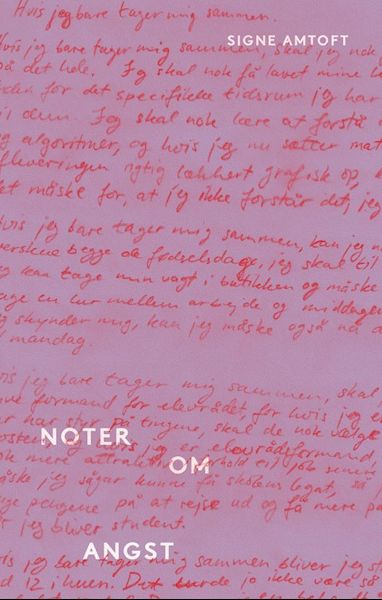 Hvis jeg bare tager mig sammen.
SIGNE AMTOFT
Hvis jeg bare tager mig sammen, skal jeg nok
på det hele. Jeg skal nok få lavet mine
for det specifikke tidsrum jeg har
til dem. Jeg skal nok lære at forstå
og algoritmer, og hvis jeg nu sætter mat
afleveringen rigtig lækkert grafisk op,
det måske for, at jeg ikke forstår det, jeg
Hvis jeg bare tager mig sammen, kan jeg
overskue begge de fødselsdage, jeg skal til
jeg kan tage min vagt i butikken og måske
tage en lur mellem arbejde og middagen
jeg skynder mig, kan jeg måske også nå
mandag.
Hvis jeg bare tager mig sammen, skal
formand for elevrådet for hvis jeg
har styr på tingene, skal de nok vælge
NOTER
jeg er elevrådsformand,
nok mere attraktiv i forhold til job senere
OM
måske jeg sågar kunne få skolens legat, så
pengene på at rejse ud og få mere
jeg bliver student.
ANGST
Hvis jeg bare tager mig sammen bliver jeg
12 i huen. Det burde jo ikke være så